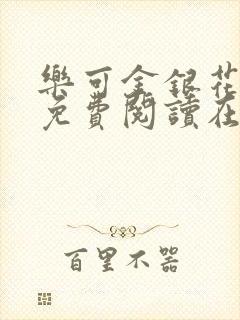 樂可金銀花
免費閱讀在
百里不器